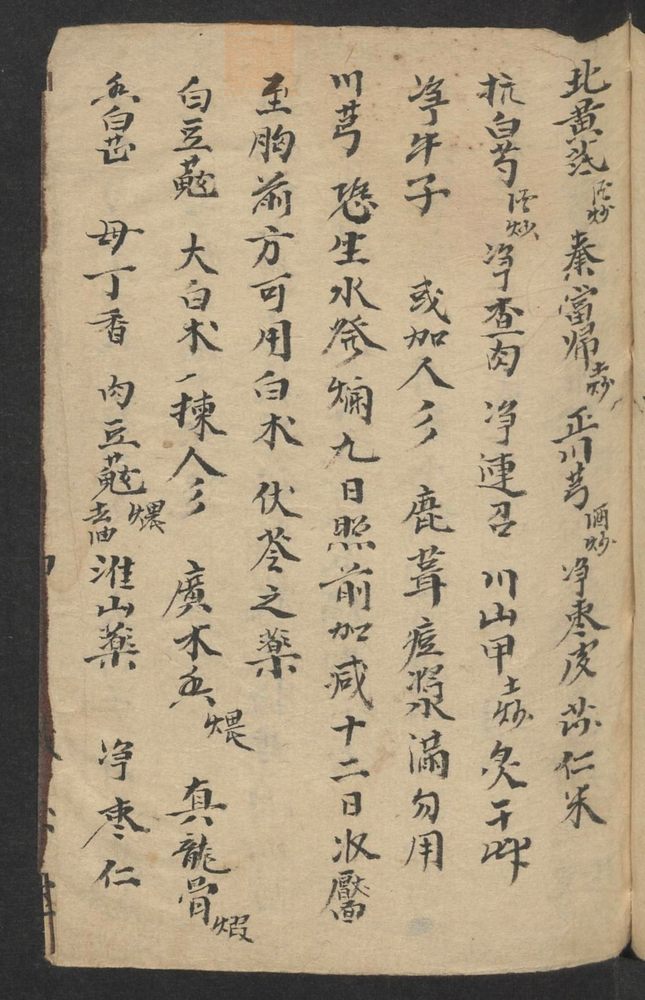 北黃芪活炒秦當歸土炒正川芎酒炒净棗皮苡仁米
抗白芍酒炒净查肉净連召川山甲土炒炙干草
净牛子或加人彡鹿茸痘漿滿勿用
川芎恐生水發爛九日照前加减十二日收靨
至胸前方可用白术伏苓之藥
白豆蔻大白术揀人彡廣木香煨真龍骨煅
香白芷母丁香肉豆蔻煨去油淮山藥净棗仁